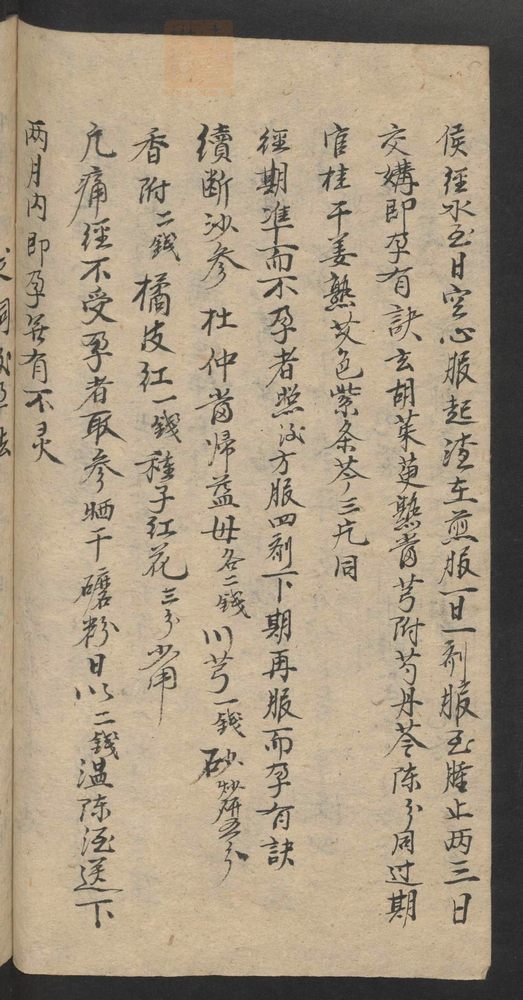 侯經水至日空心服起渣在煎服一日一剂服至腫止两三日
交媾即孕有訣玄胡茱萸熟當芎附芍丹苓陈分同过期
官桂干姜熟艾色紫条芩三片同
經期準而不孕者照後方服四剂下期再服而孕有訣
續断沙參杜仲當歸益母各二錢川芎一錢砂炒研五分
香附二錢橘皮红一錢種子红花三分少用
凢痛經不受孕者取參晒干磨粉日以二錢温陈酒送下
两月内即孕若有不灵